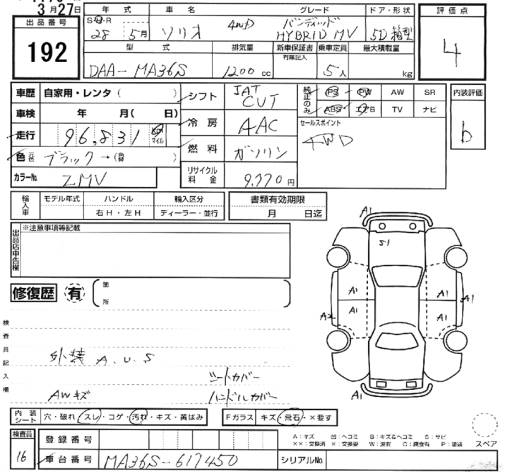 3月27日
出品番号
192
年 式
28 年 5月
車 名
ソリオ
グレード
4WD バンディッド
HYBRID MV
ドア・形状
5D 箱型
評価点
4
型 式
DAA-MA36S
排気量
1200 cc
新車保証書
有限記入
乗車定員
5人
最大積載量
kg
車歴
自家用・レンタ ( )
車検
年 月( 日)
走行
96,831
マイル
色
ブラック→
カラーNo.
ZMV
シフト
IAT
CVT
冷 房
AAC
燃 料
ガソリン
リサイクル
料 金
9,770円
純正のみ
PS PW AW SR
ABS エアB TV ナビ
セールスポイント
4WD
内装評価
b
輸入車
モデル年式
ハンドル
右H・左H
輸入区分
ディーラー・並行
書類有効期限
月 日迄
出品店申告欄
※注意事項等記載
修復歴 有
箇所
検査員記入欄
外装 A.U.S
シートカバー
AWキズ
ハンドルカバー
A1
S1
A1
A1
A1
A2
A1
A1
A1
内装
シート
穴・破れ・スレ・コゲ・汚れ・キズ・黄ばみ
Fガラス
キズ・飛石・×要す
A:キズ U:ヘコミ B:キズ&ヘコミ S:サビ
スペア
検査員
16
登録番号
車台番号
MA36S-617450
シリアルNo.